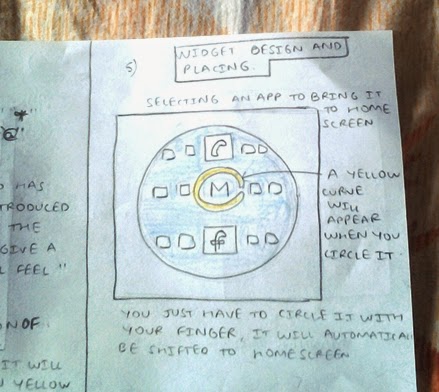 "*"
"@"
HAS
TRODUCED
THE
GIVE A
FEEL"
ON OF
IT WILL
YELLOW
5)
WIDGET DESIGN AND
PLACING.
SELECTING AN APP TO BRING IT
TO HOME
SCREEN
M
f
A YELLOW
CURVE
WILL
APPEAR
WHEN YOU
CIRCLE IT
YOU JUST HAVE TO CIRCLE IT WITH
YOUR FINGER, IT WILL AUTOMATICA
BE SHIFTED TO HOMESCREEN